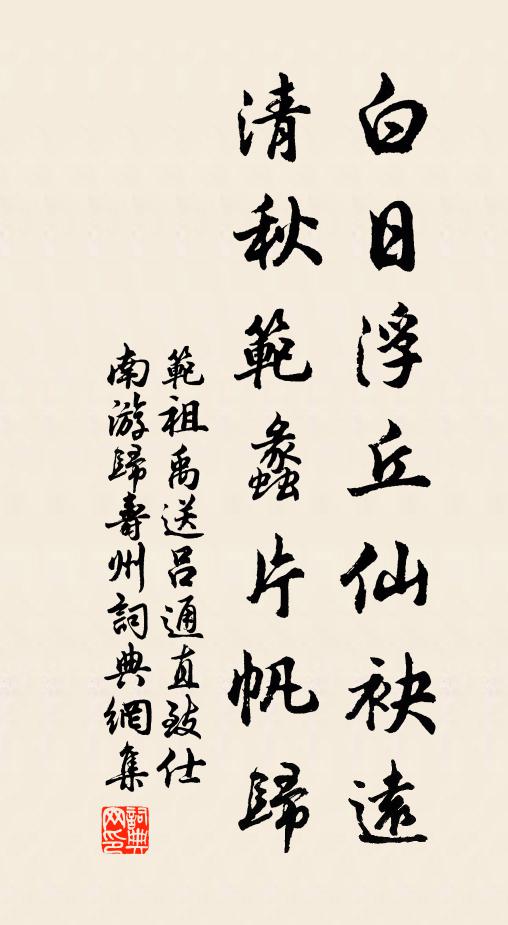 白日浮丘仙袂遠
清秋範蠡片帆歸
範祖禹送呂通直致仕
南游歸壽州詞典網集
詞典網印